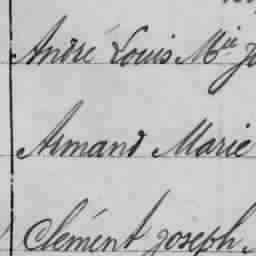 André Louis Mie
Armand Marie
Clément joseph